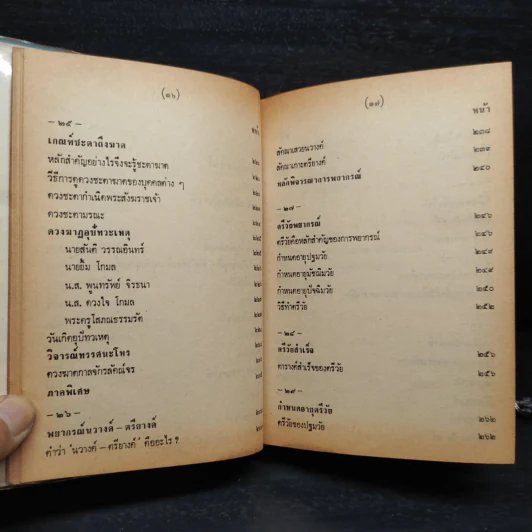 (๑๖)
— ๒๕ —
หน้า
เกณฑ์ชะตาถึงฆาต
หลักสำคัญอย่างไรจึงจะรู้ชะตาฆาต
วิธีการดูดวงชะตาฆาตของบุคคลต่าง ๆ
ดวงชะตากำเนิดพระสังฆราชเจ้า
ดวงชะตามรณะ
ดวงฆาฏอุปัทวะเหตุ
นายสันติ วรรณอินทร์
นายยิ้ม โกมล
น.ส. พูนทรัพย์ จิรธนา
น.ส. ดวงใจ โกมล
พระครูโสภณธรรมรัต
วันเกิดอุปัทวเหตุ
วิจารณ์ทรรศนะโหร
ดวงฆาตกาลจักรลัคน์จร
ภาคพิเศษ
— ๒๖ —
พยากรณ์นวางค์ – ตรียางค์
คำว่า "นวางค์ – ตรียางค์" คืออะไร ?
(๑๗)
หน้า
ลัคนาเสวยนวางค์ ๒๓๘
ลัคนาเกาะตรียางค์ ๒๓๙
หลักพิจารณาการพยากรณ์ ๒๔๐
— ๒๗ —
ตรีวัยพยากรณ์ ๒๔๖
ตรีวัยคือหลักสำคัญของการพยากรณ์ ๒๔๖
กำหนดอายุปฐมวัย ๒๔๙
กำหนดอายุมัชฌิมวัย ๒๔๙
กำหนดอายุปัจฉิมวัย ๒๕๐
วิธีทำตรีวัย ๒๕๒
— ๒๘ —
ตรีวัยสำเร็จ ๒๕๖
ตารางค์สำเร็จของตรีวัย ๒๕๖
— ๒๙ —
กำหนดอายุตรีวัย ๒๖๒
ตรีวัยของปฐมวัย ๒๖๒